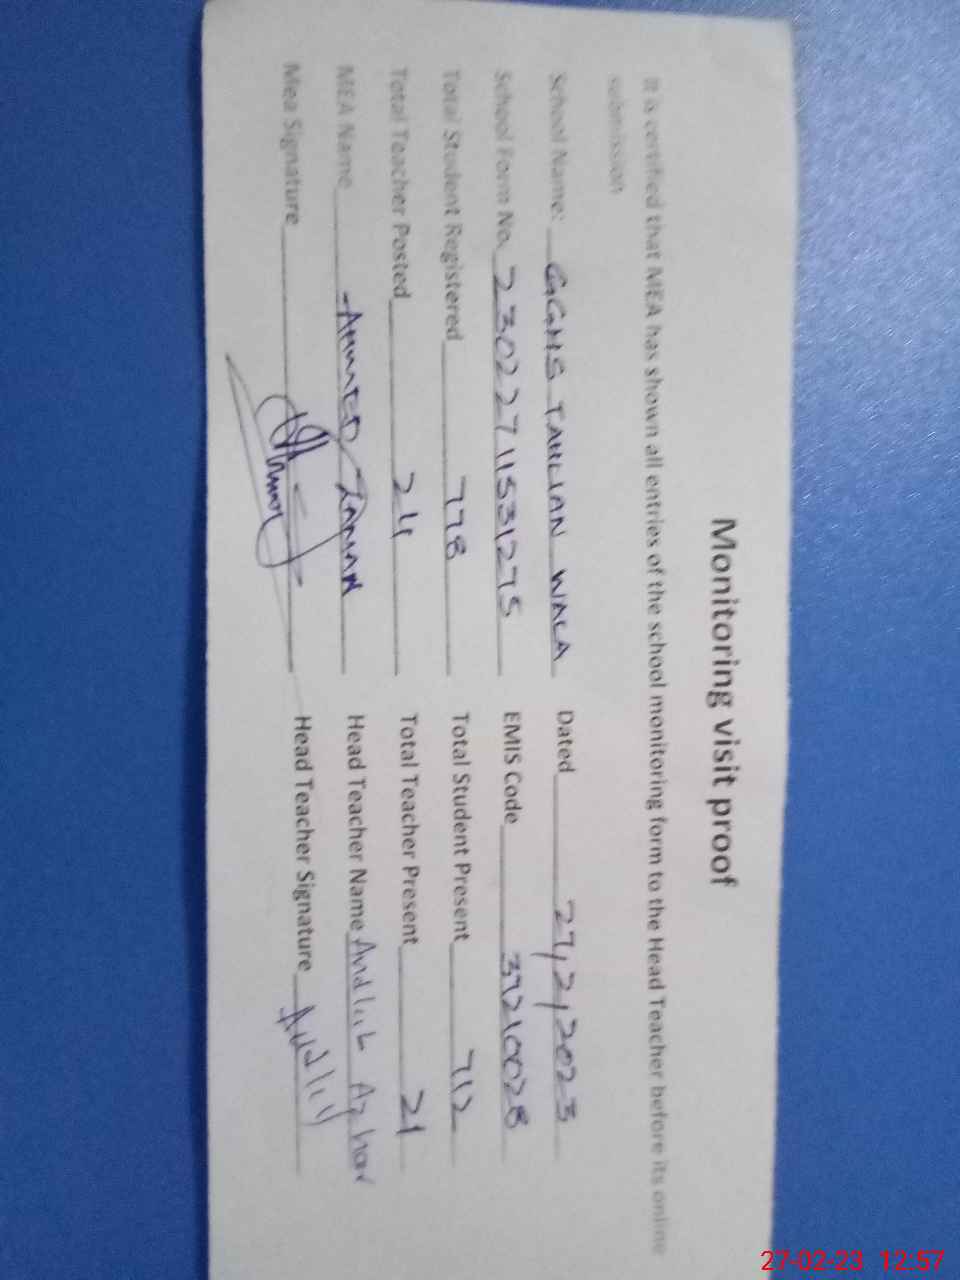 Monitoring visit proof
It is certified that MEA has shown all entries of the school monitoring form to the Head Teacher before its online
submission
School Name: GGHS TAHLIAN WALA Dated 27,2,2023
School Form No. 23022711531275 EMIS Code 37210028
Total Student Registered 778 Total Student Present 712
Total Teacher Posted 24 Total Teacher Present 21
MEA Name AHMED ZAMAN Head Teacher Name Andleeb Azhar
Mea Signature Head Teacher Signature
27-02-23 12:57